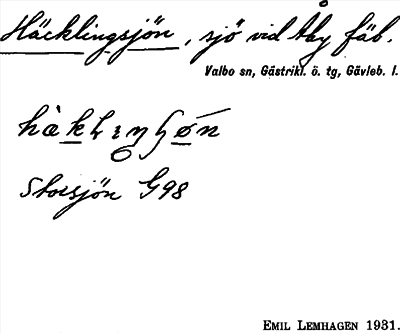 Häcklingsjön, sjö vid Åby fäb.
Valbo sn, Gästrikl. ö. tg, Gävleb. l.
Storsjön G98
EMIL LEMHAGEN 1931.